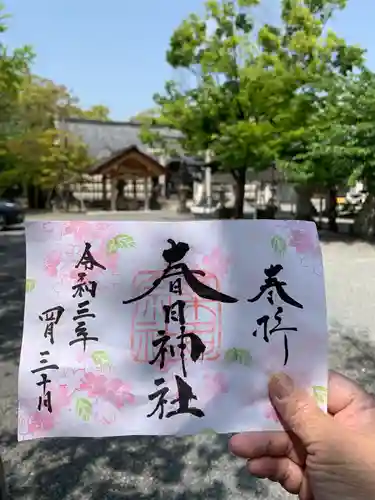 奉拝
春日神社
令和三年
四月三十日